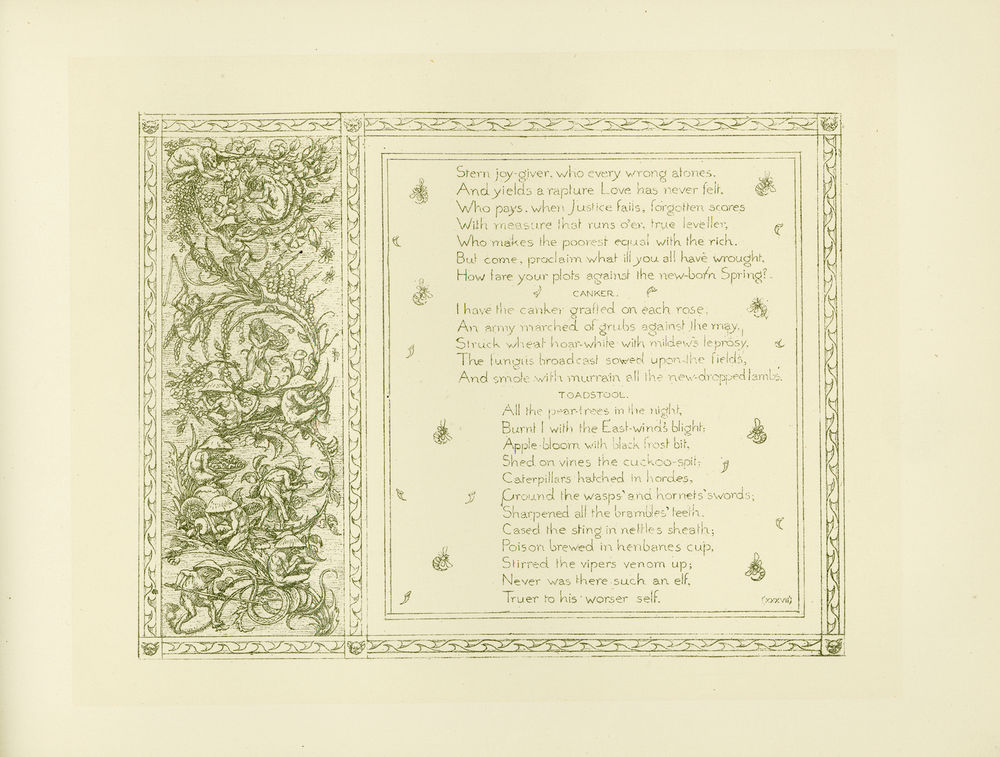 Stern joy-giver, who every wrong atones,
And yields a rapture Love has never felt,
Who pays, when Justice fails, forgotten scores
With measure that runs o'er, true leveller,
Who makes the poorest equal with the rich.
But come, proclaim what ill you all have wrought,
How fare your plots against the new-born Spring?
CANKER.
I have the canker grafted on each rose;
An army marched of grubs against the may,
Struck wheat hoar-white with mildew's leprosy,
The fungus broadcast sowed upon the fields,
And smote with murrain all the new-dropped lambs.
TOADSTOOL.
All the pear-trees in the night,
Burnt I with the East-wind's blight;
Apple-bloom with black frost bit,
Shed on vines the cuckoo-spit;
Caterpillars hatched in hordes,
Ground the wasps' and hornets' swords;
Sharpened all the brambles' teeth,
Cased the sting in nettles sheath;
Poison brewed in henbanes cup,
Stirred the vipers venom up;
Never was there such an elf,
Truer to his worser self.
(xxxvii)